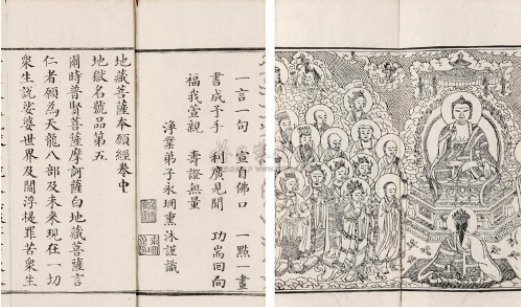 一言一句　宣自佛口　一點一畫
書成予手　利廣見聞　功耑回向
福我萱親　壽證無量
淨業弟子永珊熏沐謹識
地藏菩薩本願經卷中
地獄名號品第五
爾時普賢菩薩摩訶薩白地藏菩薩言
仁者願為天龍八部及未來現在一切
衆生說娑婆世界及閻浮提罪苦衆生